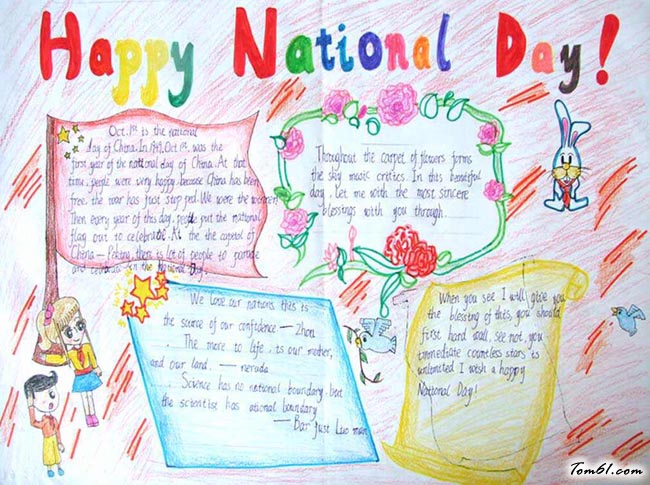 Happy National Day!
Oct. 1st is the national
day of China. In 1949, Oct 1st, was the
first year of the national day of China. At that
time, people were very happy, because China has been
free. the war has just stopped. We were the winner!
Then every year of this day, people put the national
flag out to celebrate. At the capital of
China — Peking, there is lot of people to parade
and celebrate in the National Day.
Throughout the carpet of flowers forms
the sky music critics. In this beautiful
day, Let me with the most sincere
blessings with you through.
We Love our nations. this is
the source of our confidence — Zhou
The more to life, is our mother,
and our land. — neruda
Science has no national boundary, but
the scientist has ational boundary
— Bar just Luo
When you see I will give you
the blessing of this, you should
first hard wall, see not, you
immediate countless stars is
unlimited I wish a happy
National Day!
Tom61.com